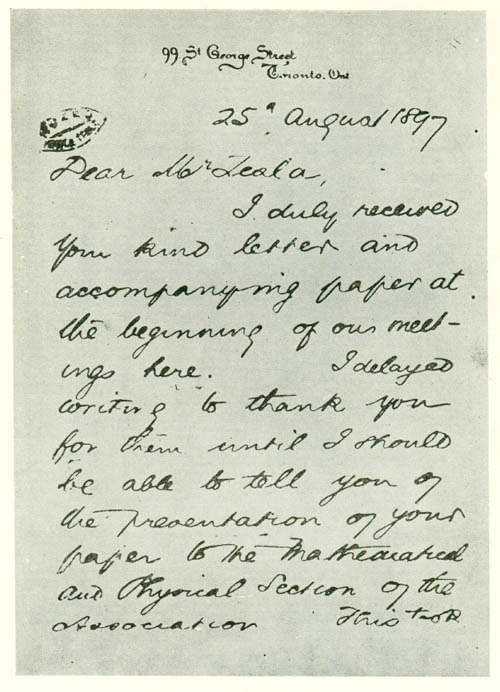 99 St George Street
Toronto. Ont
25th August 1897
MUZEJ
NIKOLA TESLE
Dear Mr Tesla,
I duly received
your kind letter and
accompanying paper at
the beginning of our meet-
ings here. I delayed
writing to thank you
for them until I should
be able to tell you of
the presentation of your
paper to the Mathematical
and Physical Section of the
Association This took